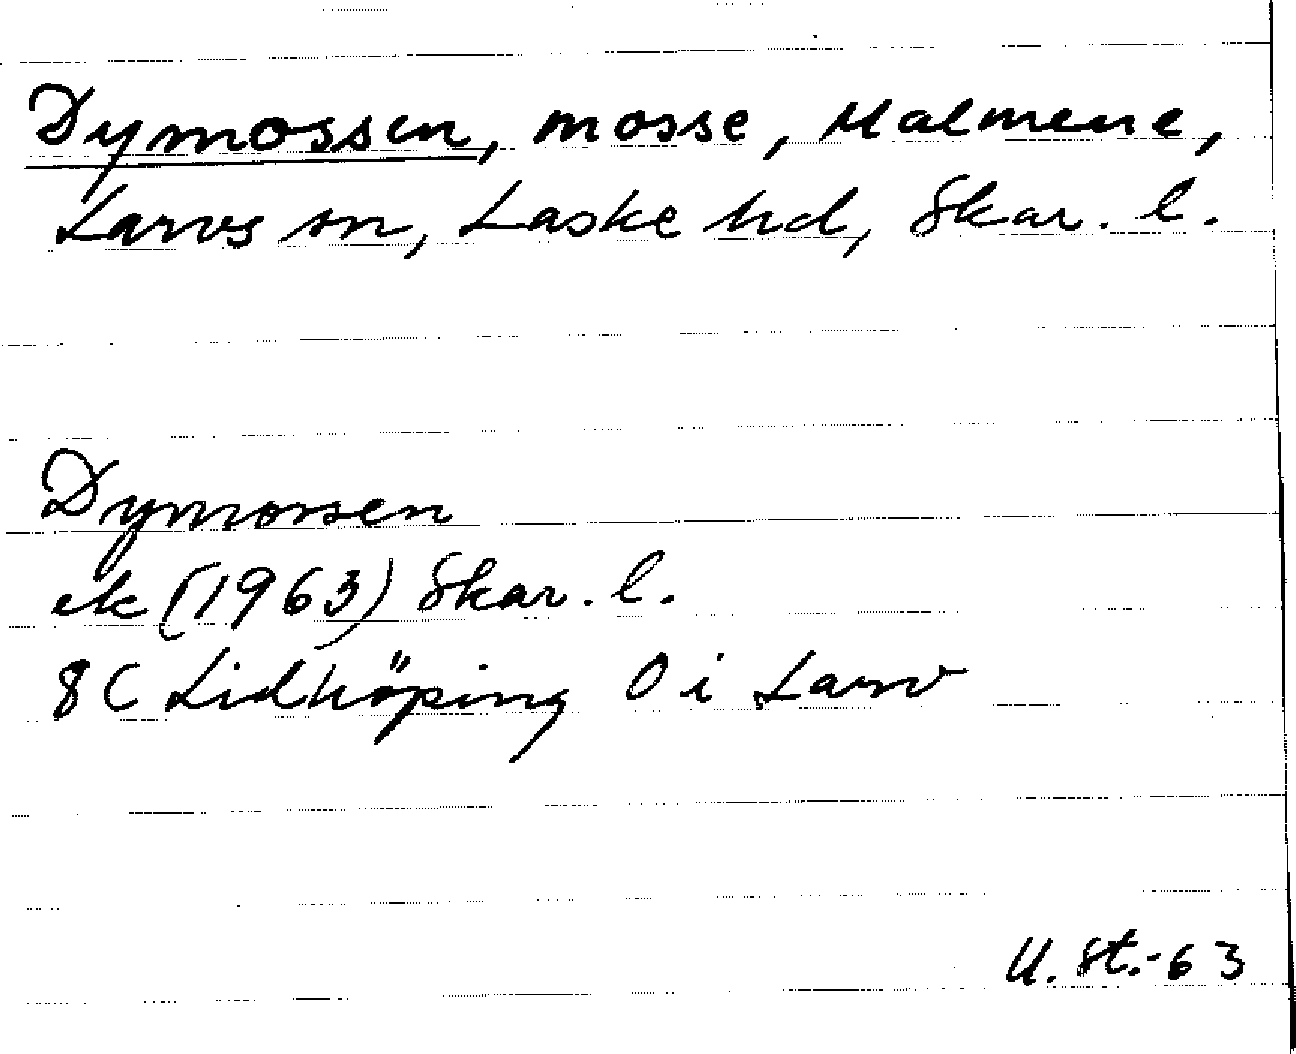 Dymossen, mosse, Malmene,
Larvs sn, Laske hd, Skar. l.
Dymossen
ek (1963) Skar. l.
8C Lidköping O i Larv
U. St.-63